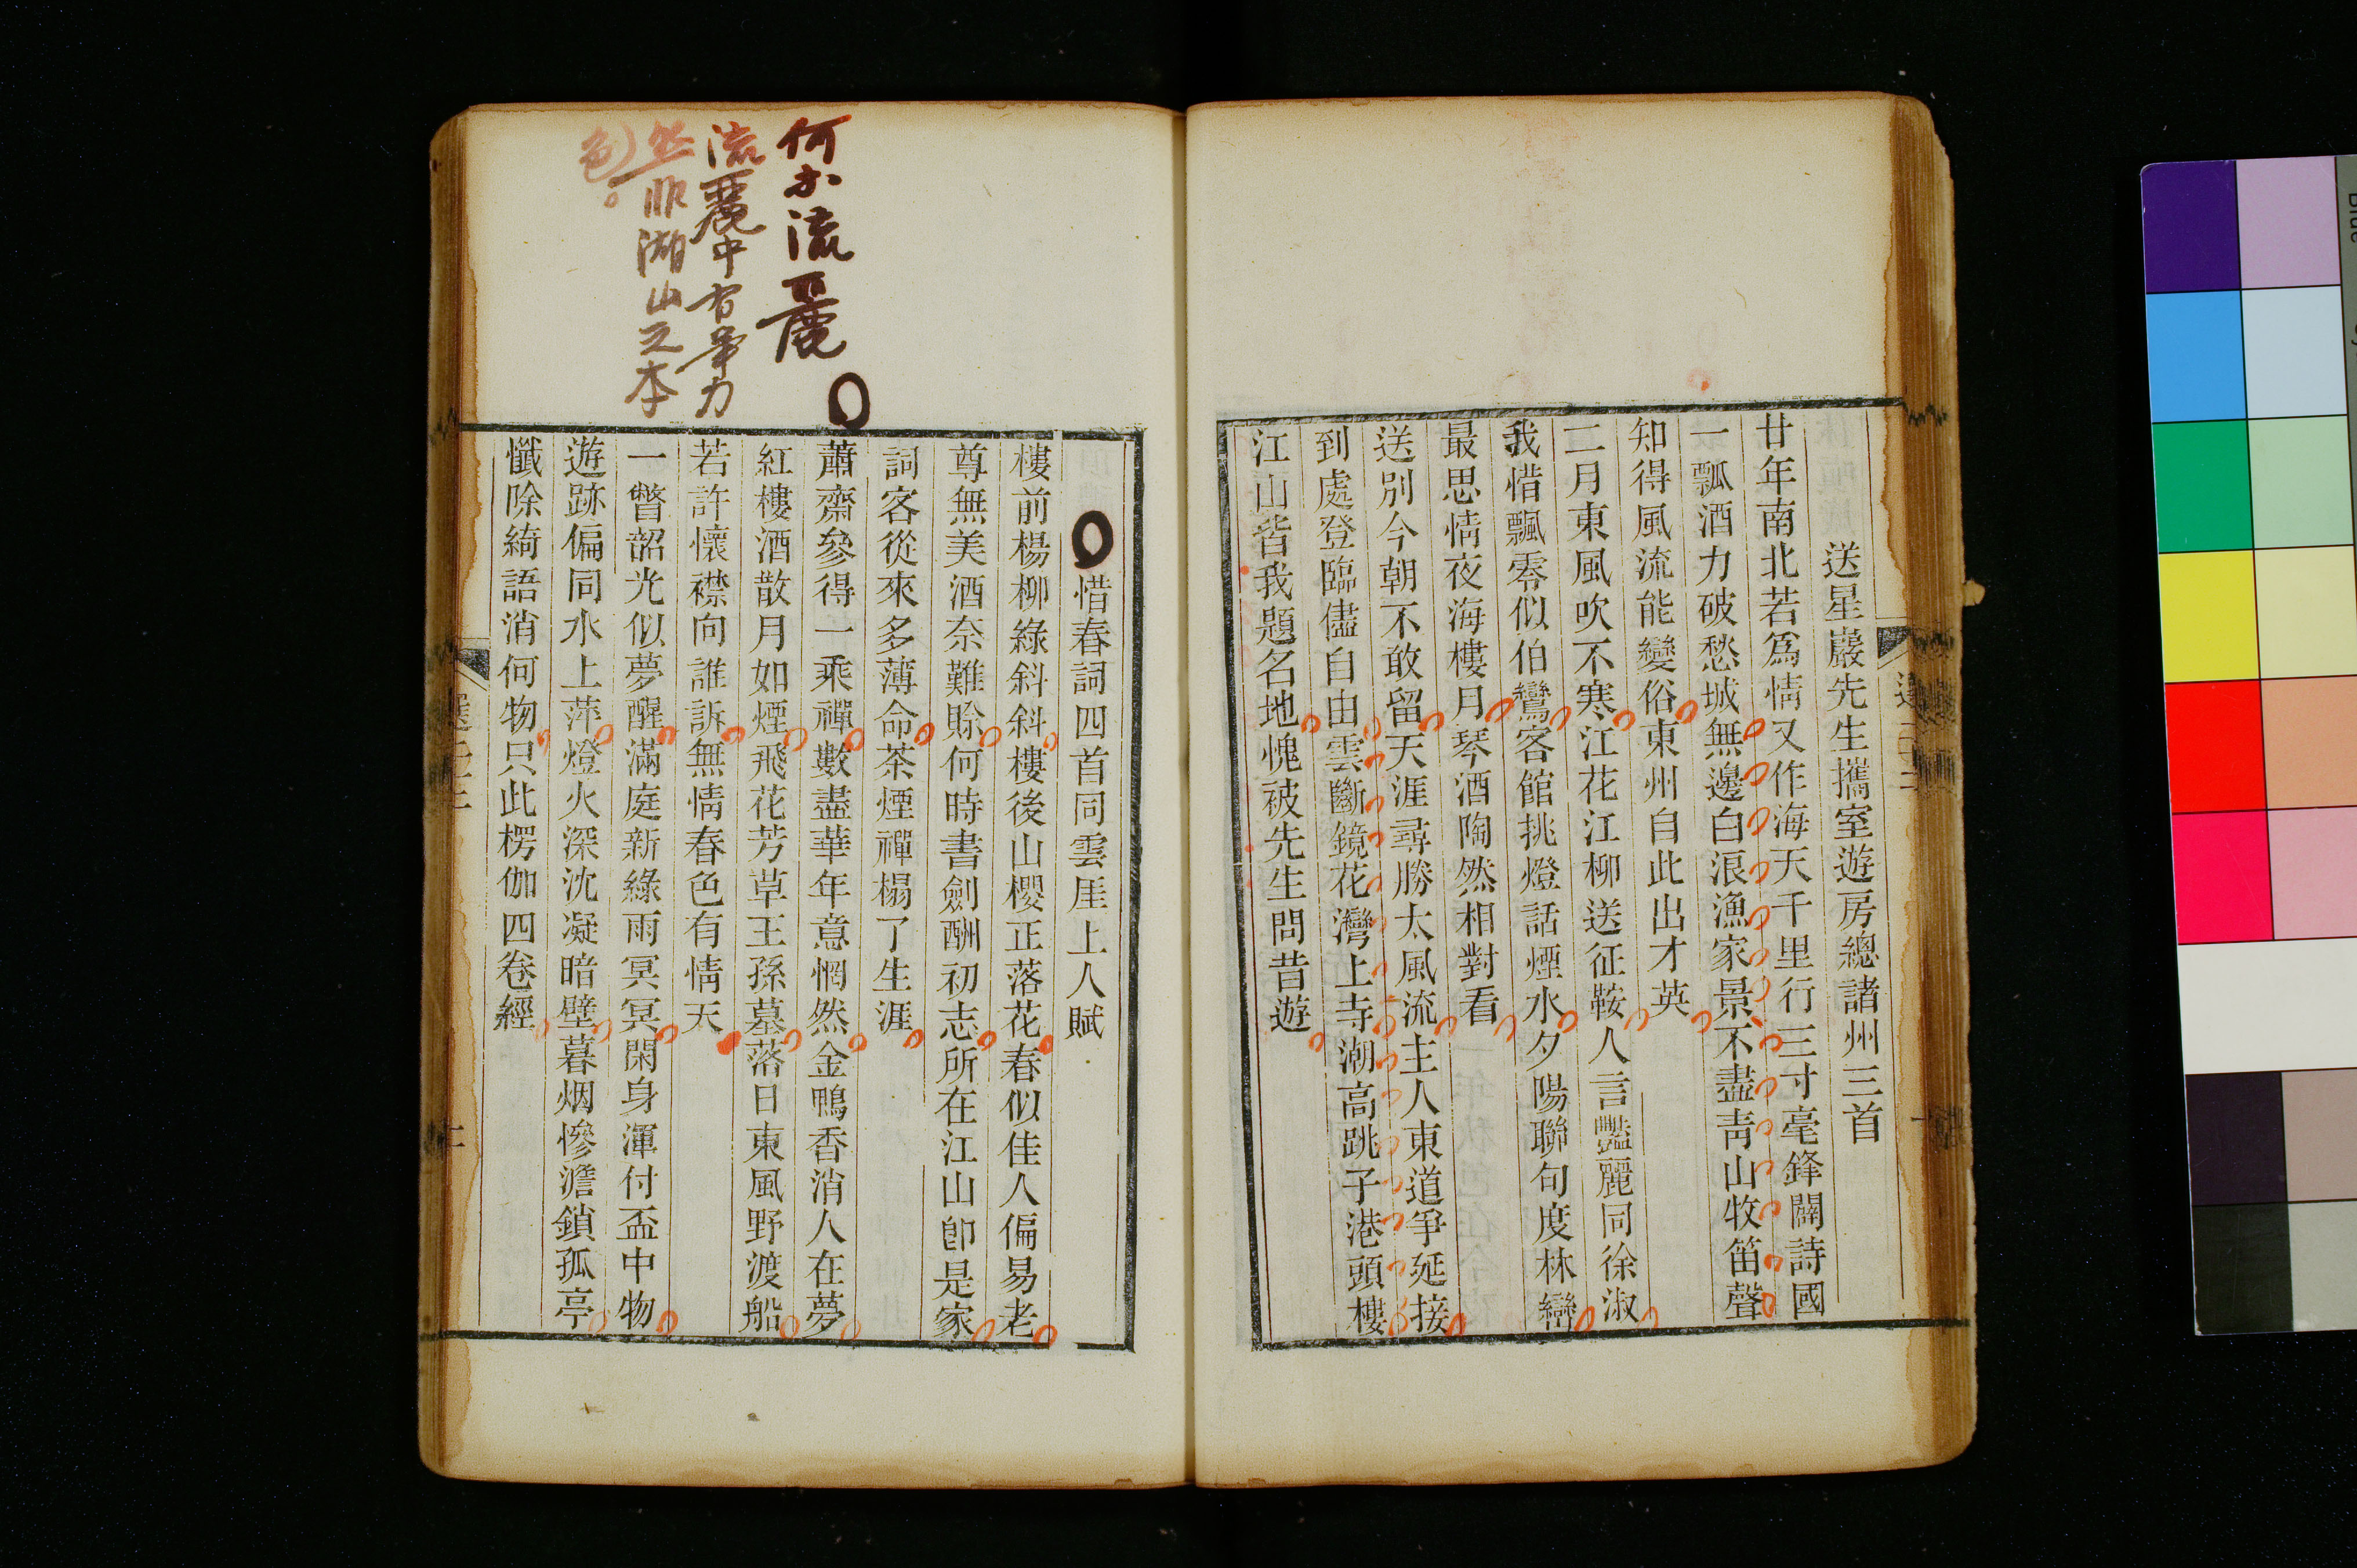 送星巖先生攜室遊房總諸州三首
廿年南北若爲情又作海天千里行三寸毫鋒闢詩國
一瓢酒力破愁城無邊白浪漁家景不盡靑山牧笛聲
知得風流能變俗東州自此出才英
二月東風吹不寒江花江柳送征鞍人言豔麗同徐淑
我惜飄零似伯鸞客館挑燈話煙水夕陽聯句度林巒
最思情夜海樓月琴酒陶然相對看
送別今朝不敢留天涯尋勝太風流主人東道爭延接
到處登臨儘自由雲斷鏡花灣上寺潮高跳子港頭樓
江山皆我題名地愧被先生問昔遊
惜春詞四首同雲厓上人賦
樓前楊柳綠斜斜樓後山櫻正落花春似佳人偏易老
尊無美酒奈難賒何時書劍酬初志所在江山卽是家
詞客從來多薄命茶煙禪榻了生涯
蕭齋參得一乘禪數盡華年意惘然金鴨香消人在夢
紅樓酒散月如煙飛花芳草王孫墓落日東風野渡船
若許懷襟向誰訴無情春色有情天
一瞥韶光似夢醒滿庭新綠雨冥冥閑身渾付盃中物
遊跡偏同水上萍燈火深沈凝暗壁暮烟慘澹鎖孤亭
懺除綺語消何物只此楞伽四卷經
何不流麗
流麗中有筆力
然非湖山之本
色